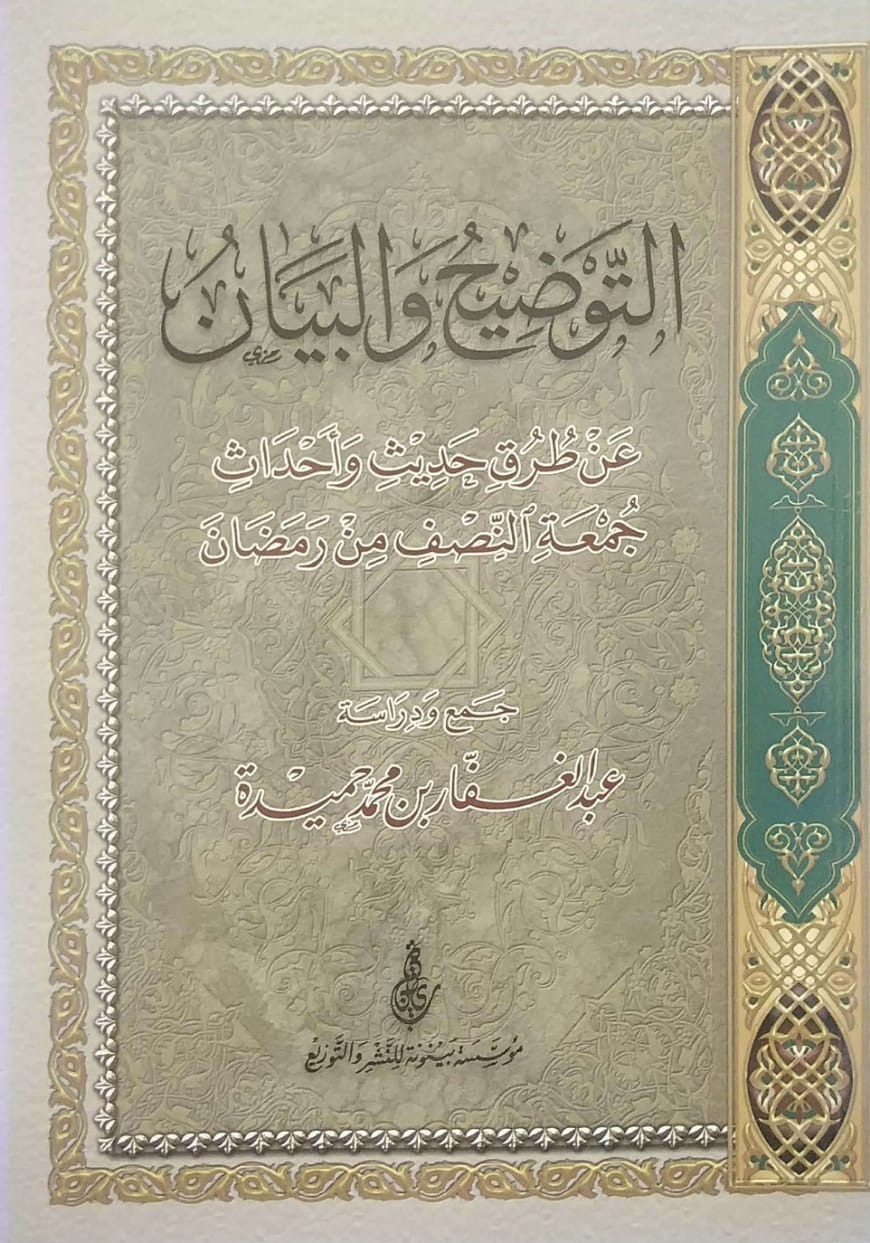 التَّوْضِيحُ وَالْبَيَانُ
عَنْ طُرُقِ حَدِيْثِ وَأَحْدَاثِ
جُمْعَةِ ٱلنِّصْفِ مِنْ رَمَضَانَ
جَمع وَدِرَاسَة
عبد الغفّار بن محمّد حميدة
مُؤسَّسَة بَيْنُونَة لِلنَّشْرِ وَالتَّوْزِيْع